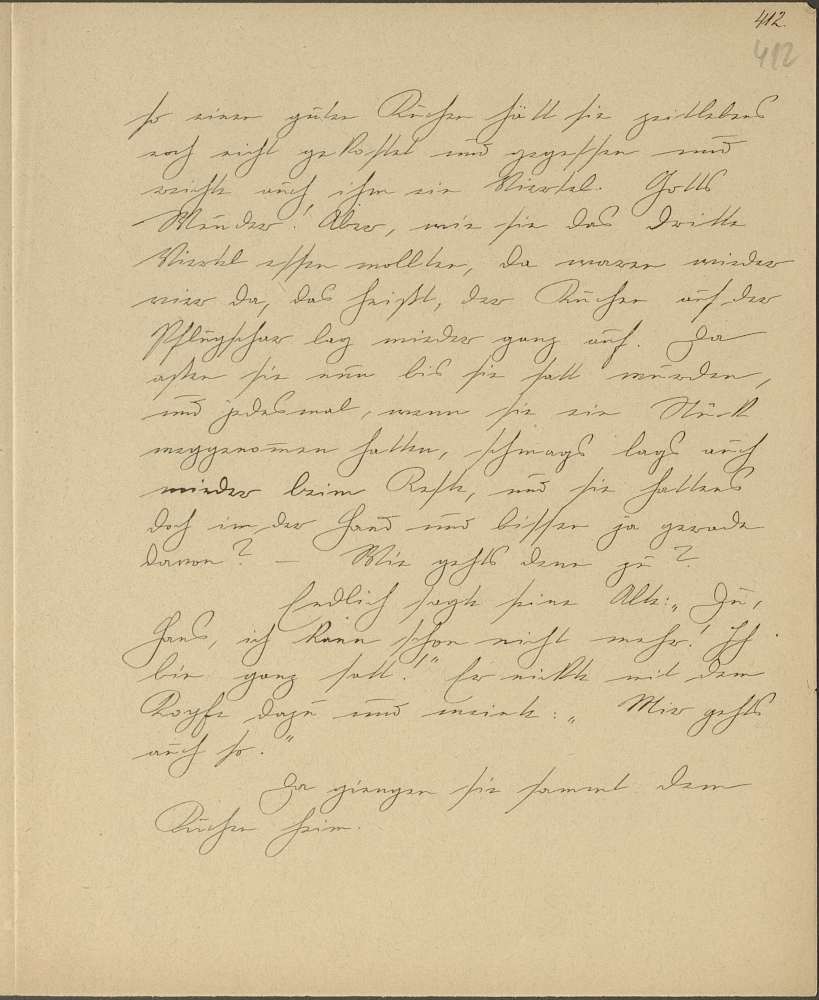 412.
412
so einen guten Kuchen hätt sie zeitlebens
noch nicht gekostet und gegessen und
reichte auch ihm ein Viertel. Gotts
Wunder! Aber, wie sie das dritte
Viertel essen wollten, da waren wieder
vier da, das heißt, der Kuchen auf der
Pflugschar lag wieder ganz auf. Da
aßen sie nun bis sie satt wurden,
und jedesmal, wenn sie ein Stück
weggenommen hatten, schwags lags auch
wieder beim Reste, und sie hattens
doch in der Hand und bissen ja gerade
davon? — Wie gehts denn zu?
Endlich sagte seine Alte: „Du,
Hans, ich kann schon nicht mehr! Ich
bin ganz satt!" Er nickte mit dem
Kopfe dazu und meinte: „Mir gehts
auch so."
Da giengen sie sammt dem
Kuchen heim.